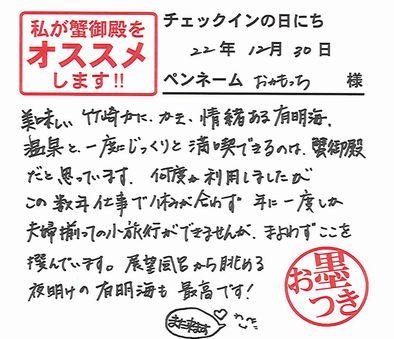 私が蟹御殿を
オススメ
します!!
チェックインの日にち
22年 12月 30日
ペンネーム おかもっち 様
美味しい竹崎かに、かき、情緒ある有明海、
温泉と、一度にじっくりと満喫できるのは、蟹御殿
だと思っています。何度か利用しましたが
この数年仕事で休みが合わず 年に一度しか
夫婦揃っての小旅行ができませんが、まよわずここを
選んでいます。展望風呂から眺める
夜明けの有明海も最高です!
また来ます
お墨つき